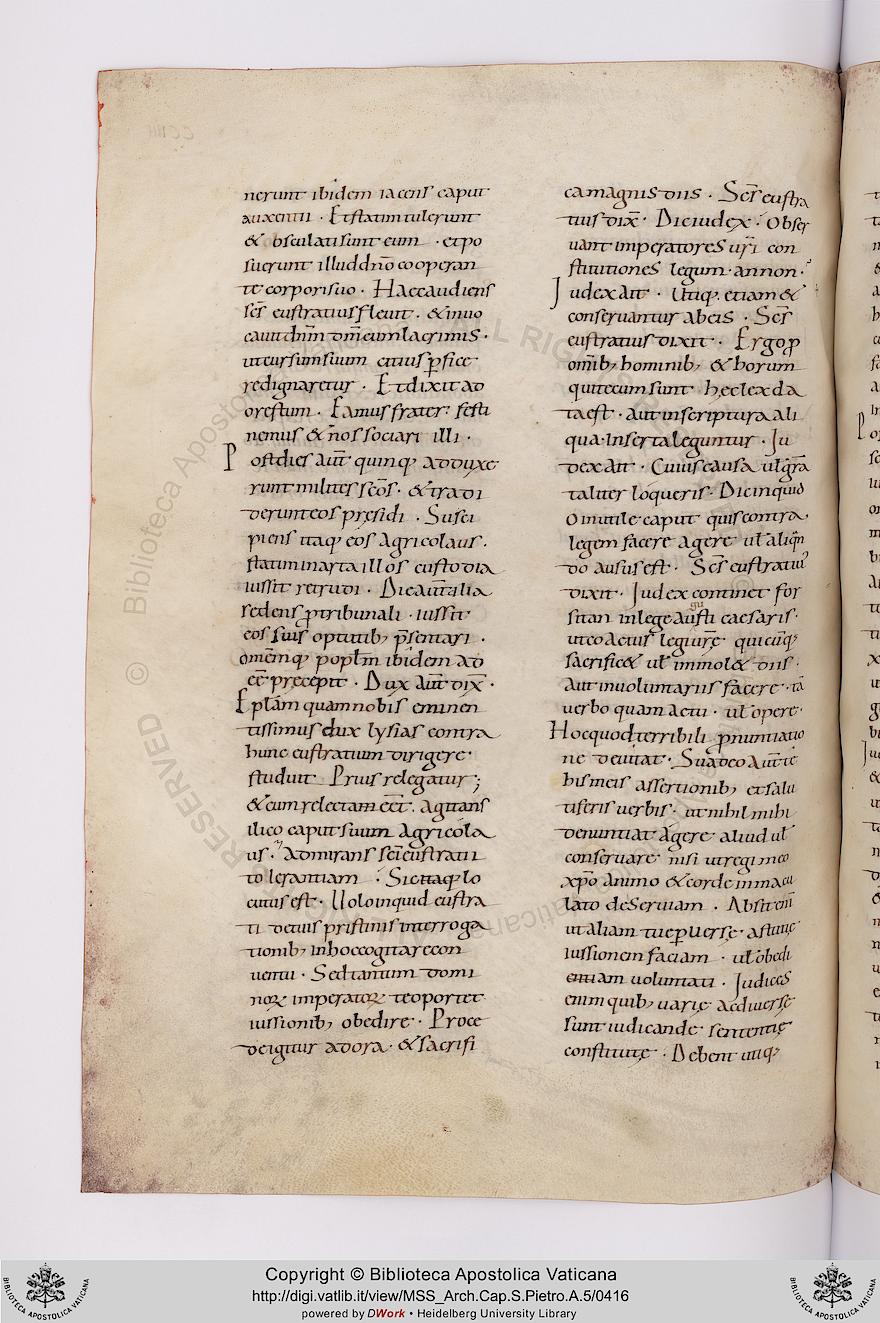 nerunt ibidem iacens caput
auxentii · Et statim tulerunt
& osculati sunt eum · et po
suerunt illud dn̄o cooperan
te corpori suo · Haec audiens
sc̄s eustratius fleuit · & inuo
cauit dn̄m om̄i cum lacrimis ·
ut cursum suum citius ꝑfice
re dignaretur · Et dixit ad
orestum · Eamus frater festi
nemus & nos sociari illi ·
Post dies aūt quinq; adduxe
runt milites sc̄os · & tradi
derunt eos presidi · Susci
piens itaq; eos Agricolaus ·
statim in arta illos custodia
iussit retrudi · Die aūt alia
sedens ꝓ tribunali · iussit
eos suis optutib; p̄sentari ·
omēmq; popl̄m ibidem ad
eē precepit · Dux aūt dix̄ ·
Eplām quam nobis eminen
tissimus dux lysias contra
hunc eustratium dirigere
studuit Prius relegatur ;
& cum relecta eēt · agitans
ilico caput suum Agricola
us · admirans sc̄i eustratii
tolerantiam · Sic itaq; lo
cutus est · Uolo inquid eustra
ti de tuis pristinis interroga
tionib; in hoc cogitare con
uentu · Sed tantum domi
norꝝ imperatorꝝ te oportet
iussionib; obedire · Proce
de igitur adora · & sacrifi
ca magnis diis · Sc̄s eustra
tius dix̄ · Dic iudex · Obser
uant imperatores ur̄i con
stitutiones legum · annon ·
Iudex ait · Utiq; etiam &
conseruantur ab eis · Sc̄s
eustratius dixit · Ergo ꝓ
omīb; hominib; & horum
qui tecum sunt hec lex da
ta est · aut in scriptura ali
qua inserta leguntur · Iu
dex ait · Cuius causa ul̄ grā
taliter loqueris · Dic inquid
O inutile caput quis contra
legem facere agere ul̄ aliqn̄
do ausus est · Sc̄s eustratius
dixit · Iudex continet for
sitan in lege augusti caesaris ·
ut eo actu legiure qui cūq;
sacrific& ul̄ immol& diis ·
Aut inuoluntariis facere · tā
uerbo quam actu · ul̄ opere ·
Hoc quod terribili ꝓnuntiatio
ne deuitat · Suadeo aūt te
his meis assertionib; et salu
tiferis uerbis · ut nihil mihi
denuntiat agere aliud ul̄
conseruare nisi ut regi meo
xp̄o animo & corde inmacu
lato deseruiam · Absit enī
ut aliam tue ꝑuerse astutie
iussionem faciam · ul̄ obedi
entiam uoluntati · Iudices
enim quib; uarie ac diuerse
sunt iudicande sententie
constitute · Debent utiq;
Copyright © Biblioteca Apostolica Vaticana
http://digi.vatlib.it/view/MSS_Arch.Cap.S.Pietro.A.5/0416
powered by DWork • Heidelberg University Library